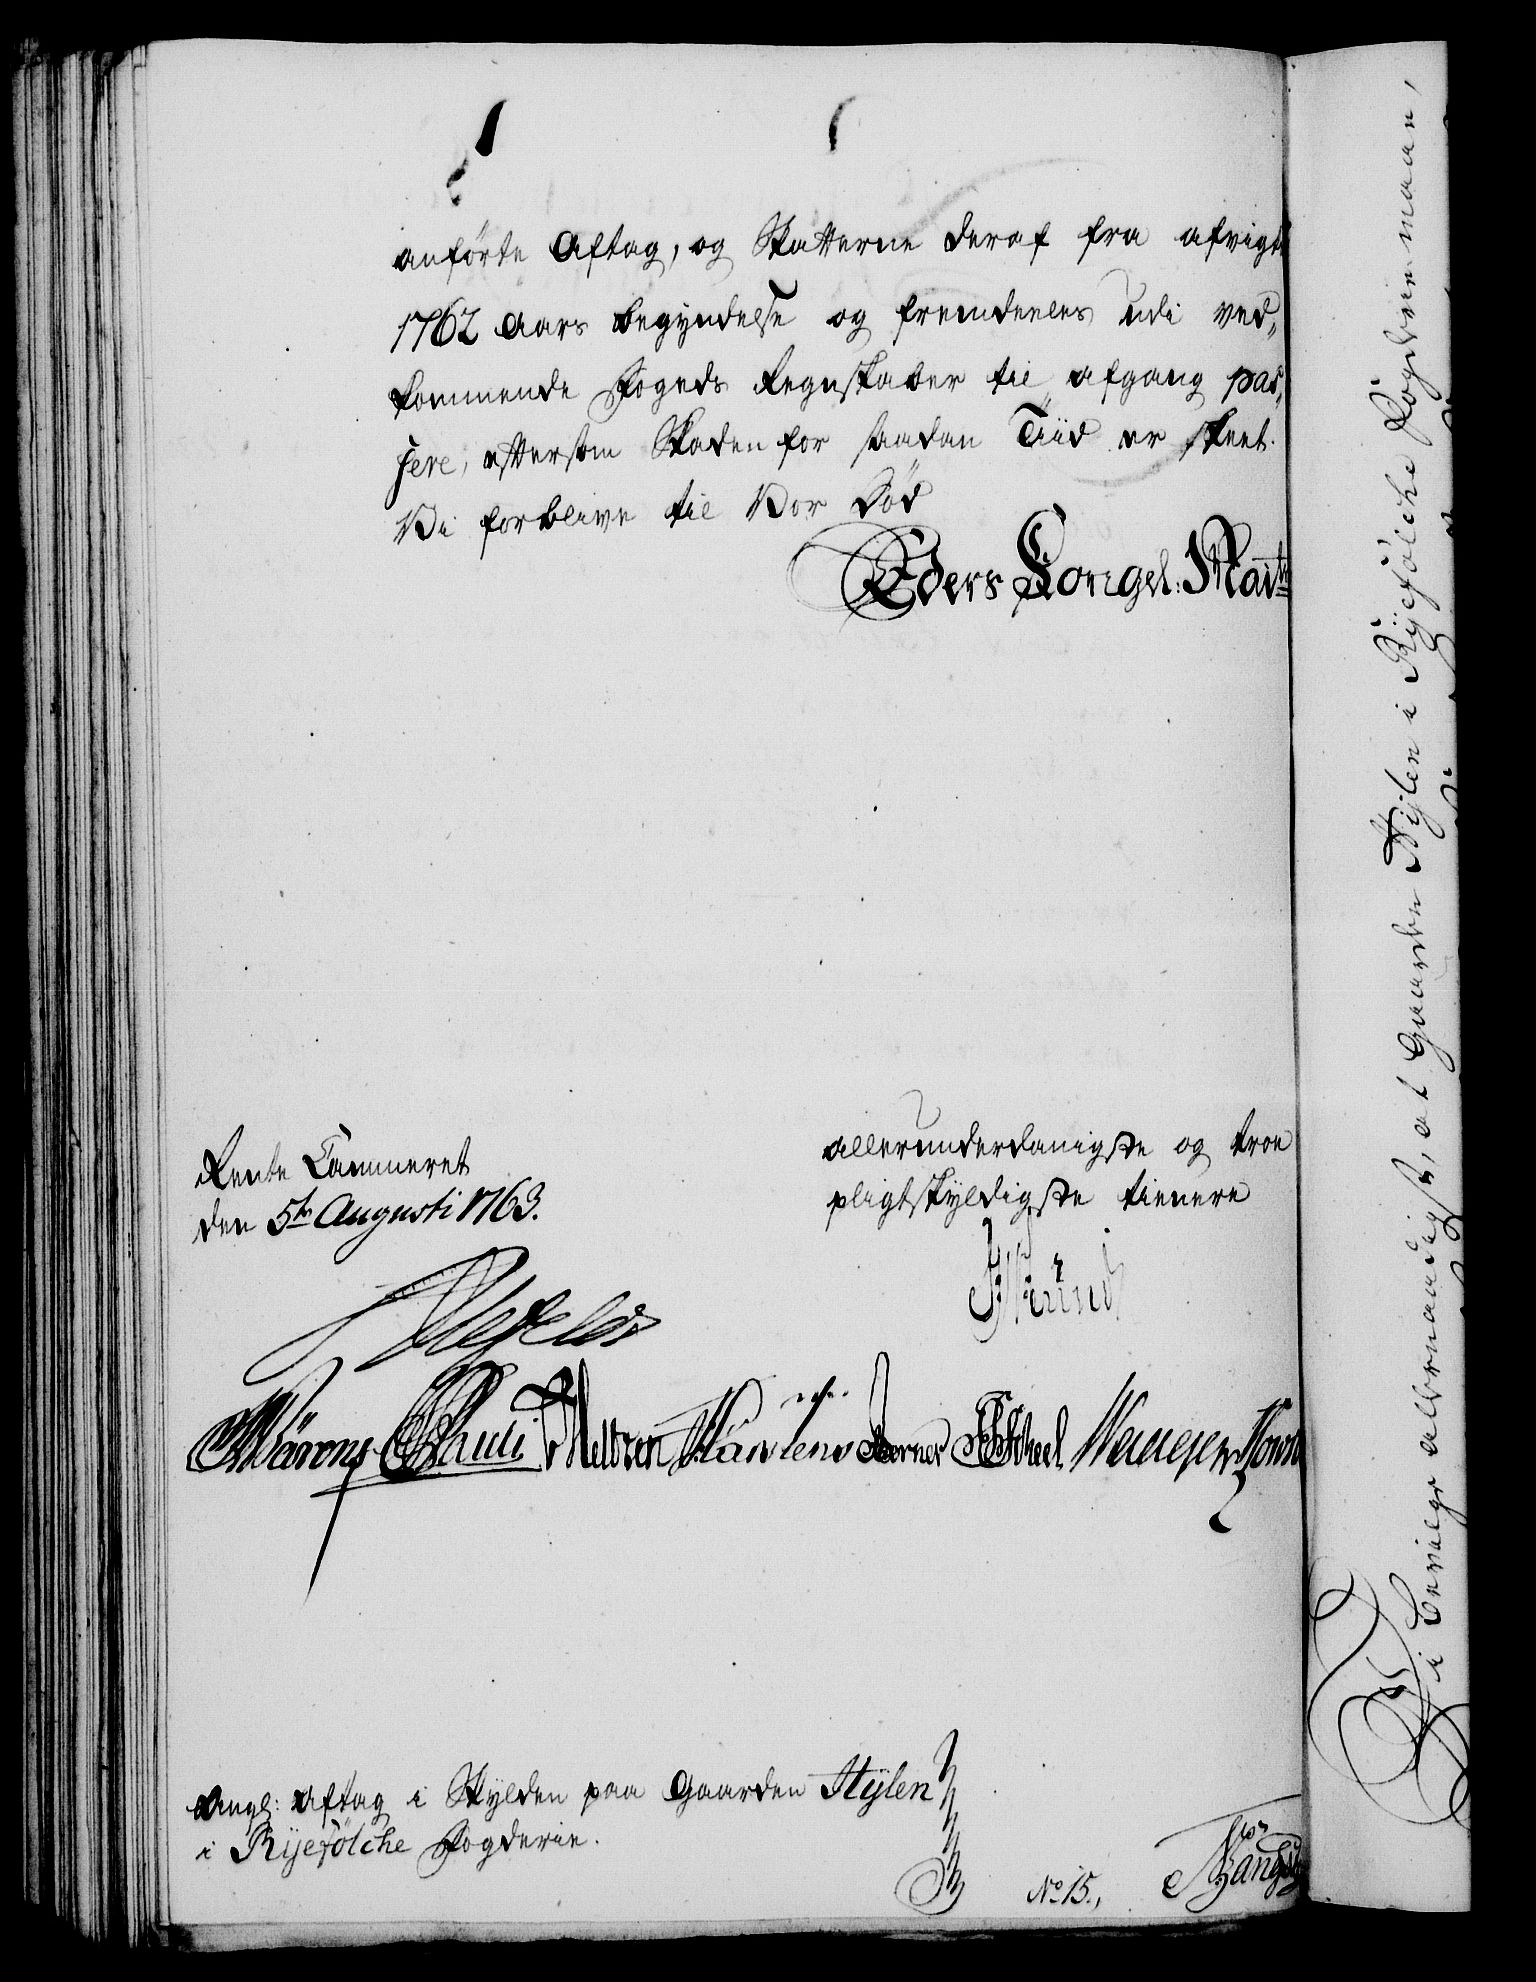 anförte Aftag, og Skatterne deraf fra afvigte
1762 Aars begyndelse og fremdeeles udi ved„
kommende Fogeds Regnskaber til afgang pas„
sere, eftersom Skaden for saadan Tiid er skeet.
Vi forblive til Vor Död
Eders Kongel: Mait:
allerunderdanigste og troe
pligtskyldigste tienere
Rente Cammeret
den 5te Augusti 1763.
Pauli Meltzen Martens Scheel
Ang: Aftag i Skylden paa Gaarden Stÿlen
i Rÿefölche Fogderie.
No 15.,
Vi bevilge allernaadigst, at Gaarden Stÿlen i Rÿefölche Fogderie maae,